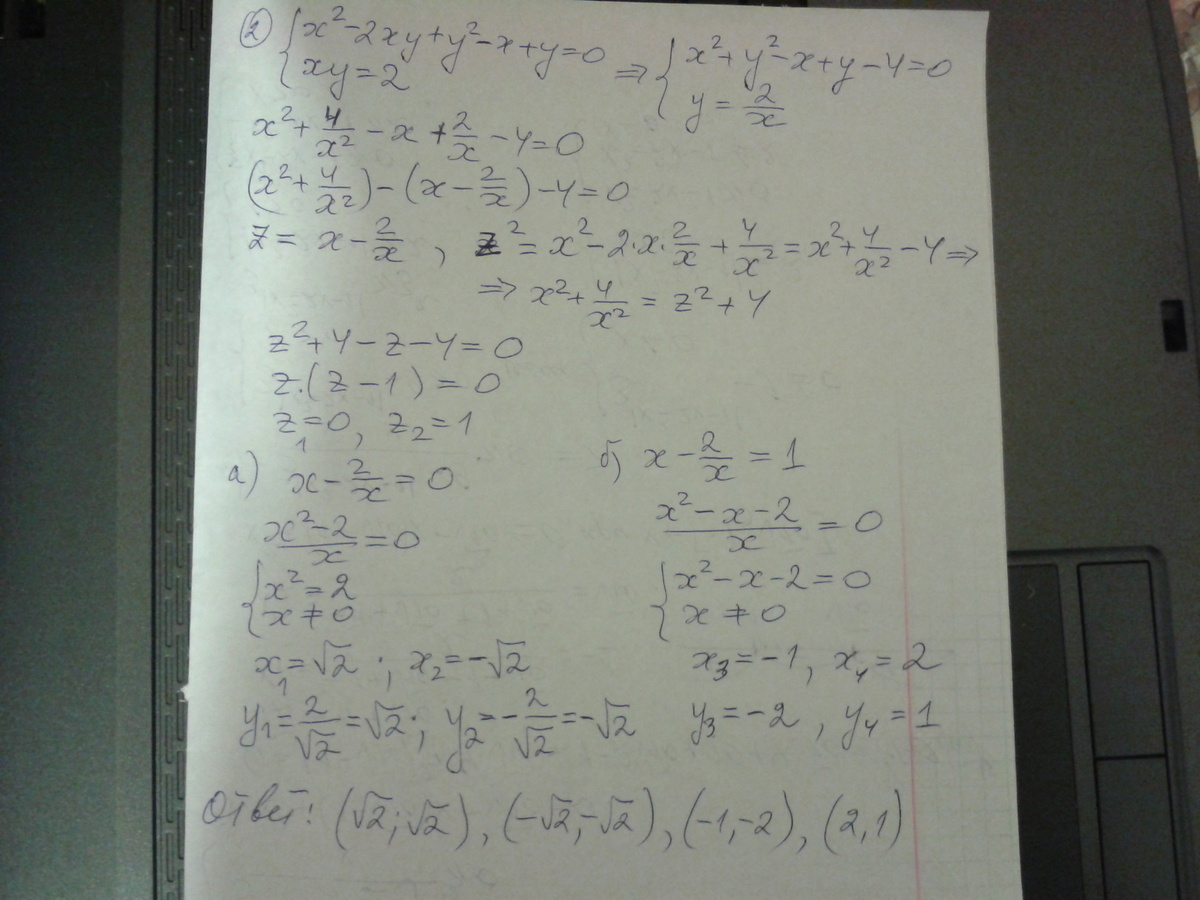 ② { x² - 2xy + y² - x + y = 0 ⇒ { x² + y² - x + y - 4 = 0
xy = 2 y = 2/x
x² + 4/x² - x + 2/x - 4 = 0
(x² + 4/x²) - (x - 2/x) - 4 = 0
z = x - 2/x , z² = x² - 2·x·2/x + 4/x² = x² + 4/x² - 4 ⇒
⇒ x² + 4/x² = z² + 4
z² + 4 - z - 4 = 0
z·(z - 1) = 0
z₁ = 0, z₂ = 1
а) x - 2/x = 0
(x² - 2)/x = 0
{ x² = 2
x ≠ 0
x₁ = √2 ; x₂ = -√2
y₁ = 2/√2 = √2 ; y₂ = -2/√2 = -√2
б) x - 2/x = 1
(x² - x - 2)/x = 0
{ x² - x - 2 = 0
x ≠ 0
x₃ = -1, x₄ = 2
y₃ = -2 , y₄ = 1
Ответ: (√2; √2), (-√2, -√2), (-1, -2), (2, 1)